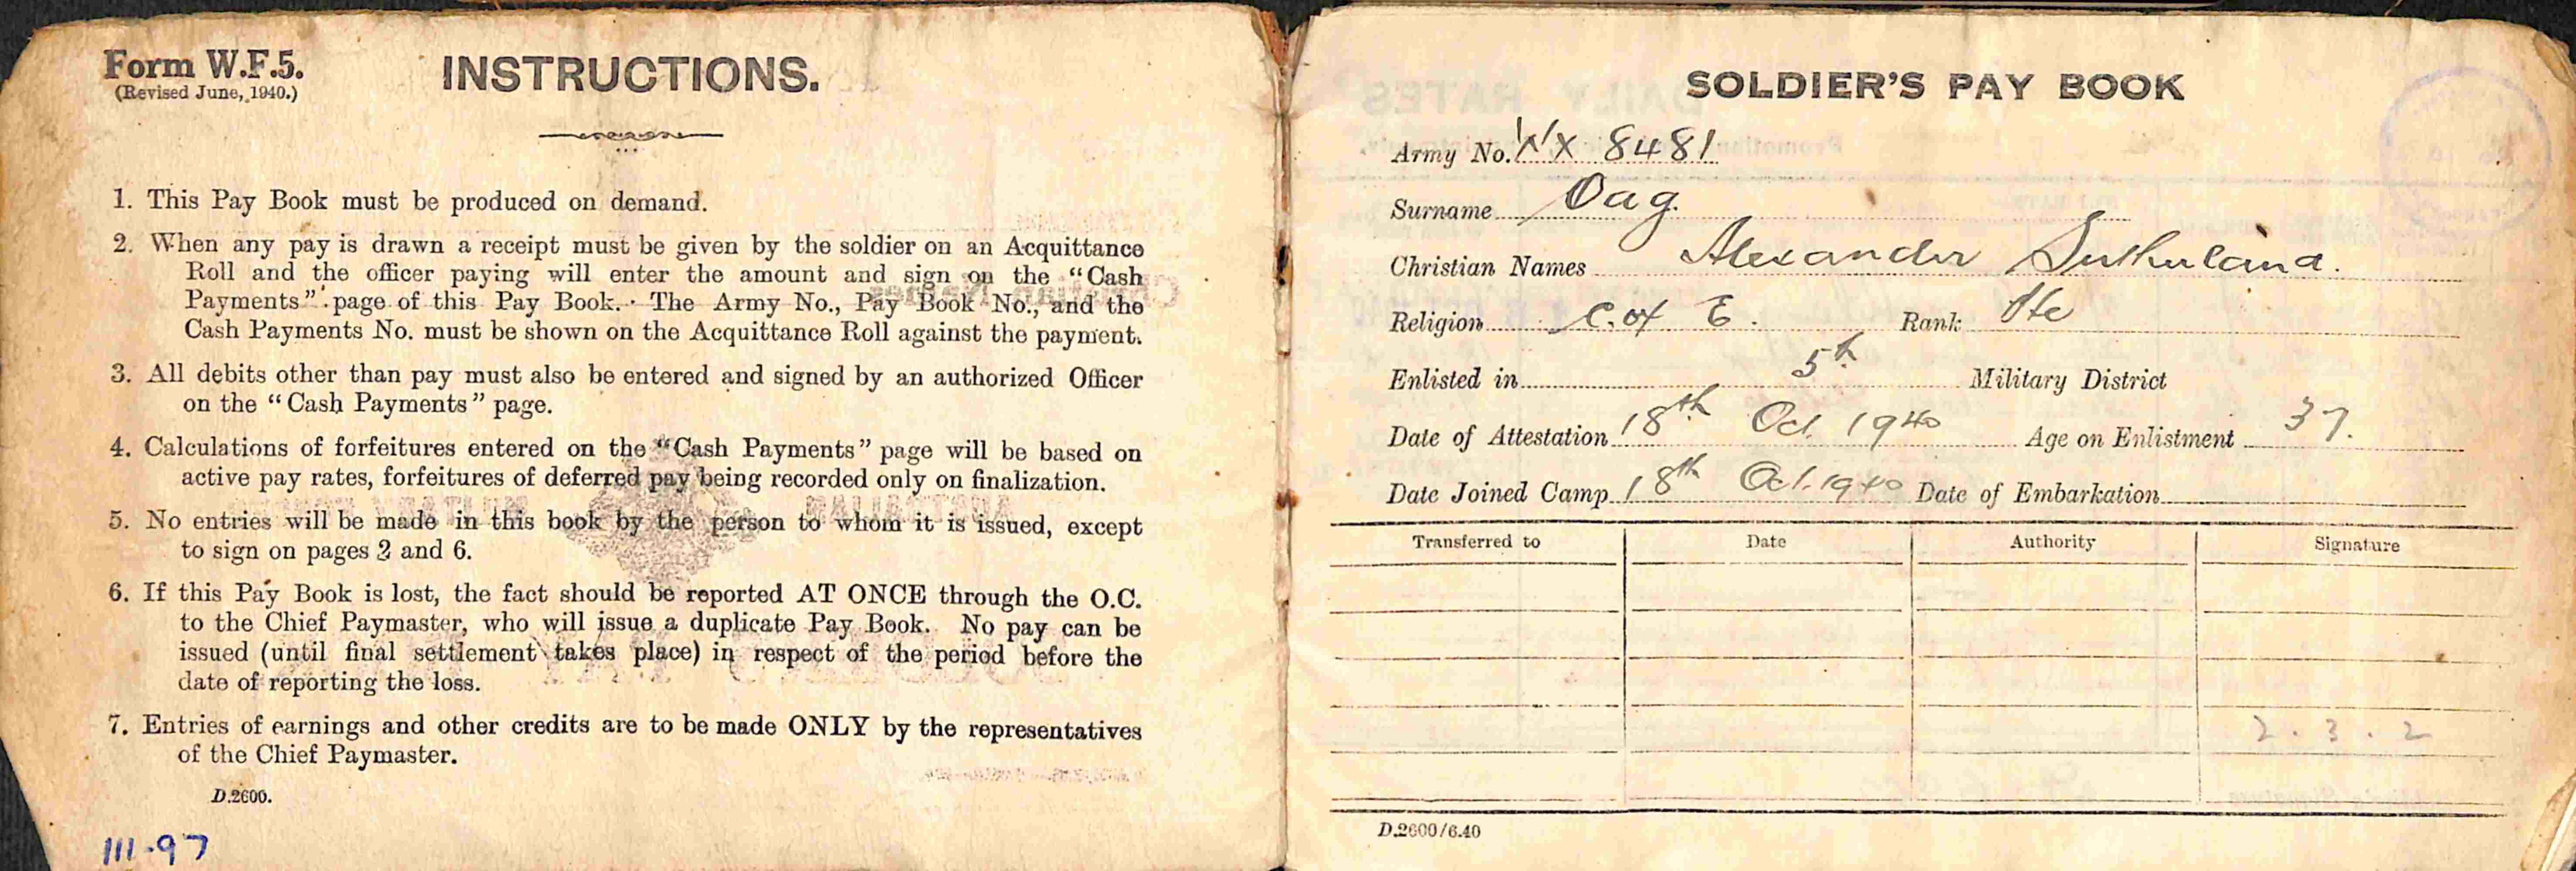 Form W.F.5.
(Revised June, 1940.)
INSTRUCTIONS.
1. This Pay Book must be produced on demand.
2. When any pay is drawn a receipt must be given by the soldier on an Acquittance
Roll and the officer paying will enter the amount and sign on the "Cash
Payments" page of this Pay Book. The Army No., Pay Book No., and the
Cash Payments No. must be shown on the Acquittance Roll against the payment.
3. All debits other than pay must also be entered and signed by an authorized Officer
on the "Cash Payments" page.
4. Calculations of forfeitures entered on the "Cash Payments" page will be based on
active pay rates, forfeitures of deferred pay being recorded only on finalization.
5. No entries will be made in this book by the person to whom it is issued, except
to sign on pages 2 and 6.
6. If this Pay Book is lost, the fact should be reported AT ONCE through the O.C.
to the Chief Paymaster, who will issue a duplicate Pay Book. No pay can be
issued (until final settlement takes place) in respect of the period before the
date of reporting the loss.
7. Entries of earnings and other credits are to be made ONLY by the representatives
of the Chief Paymaster.
D.2600.
111-97
SOLDIER'S PAY BOOK
Army No. WX 8481
Surname Oag.
Christian Names Alexander Sutherland.
Religion C. of E. Rank Pte
Enlisted in 5th Military District
Date of Attestation 18th Oct. 1940 Age on Enlistment 37.
Date Joined Camp 18th Oct. 1940 Date of Embarkation
Transferred to Date Authority Signature
2 . 3 . 2
D.2600/6.40